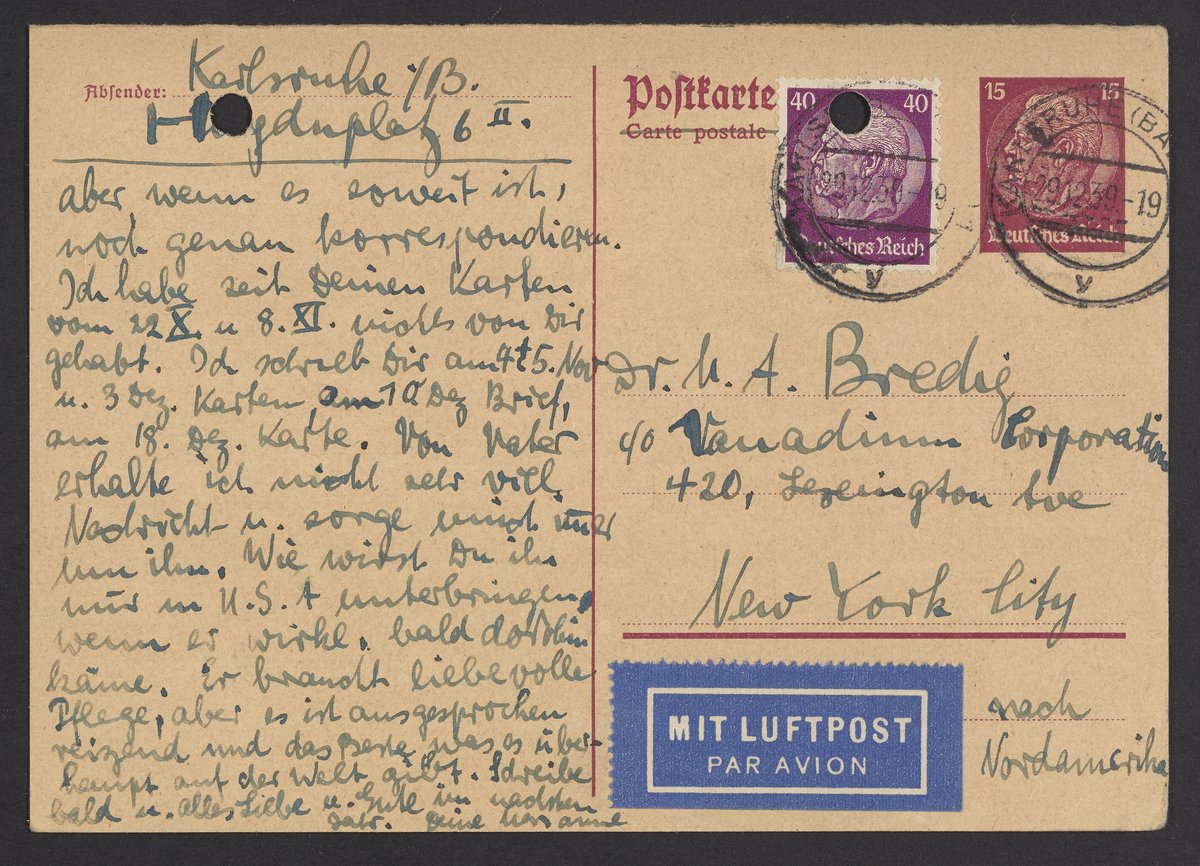 Absender: Karlsruhe i/B.
Haydnplatz 6 II.
aber wenn es soweit ist,
noch genau korrespondieren.
Ich habe seit Deinen Karten
vom 22 X. u 8. XI. nichts von Dir
gehabt. Ich schrieb Dir am 4t 5. Nov
u. 3 Dez. Karten, am 10 Dez Brief,
am 18. Dez. Karte. Von Vater
erhalte ich nicht sehr viel
Nachricht u. sorge mich
um ihn. Wie wirst Du ihn
nur in U.S.A unterbringen,
wenn er wirkl. bald dorthin
käme. Er braucht liebevolle
Pflege, aber es ist ausgesprochen
reizend und das Beste was es über-
haupt auf der Welt gibt. Schreibe
bald u. alles Liebe u. Gute im nächsten
Jahr. Deine Marianne
Postkarte
Carte postale
40 40
Deutsches Reich
15 15
Deutsches Reich
KARLSRUHE (BA
29.12.39-19
y
KARLSRUHE (BA
29.12.39-19
y
Dr. M. A. Bredig
c/o Vanadium Corporation
420, Lexington Ave
New York City
nach
Nordamerika
MIT LUFTPOST
PAR AVION